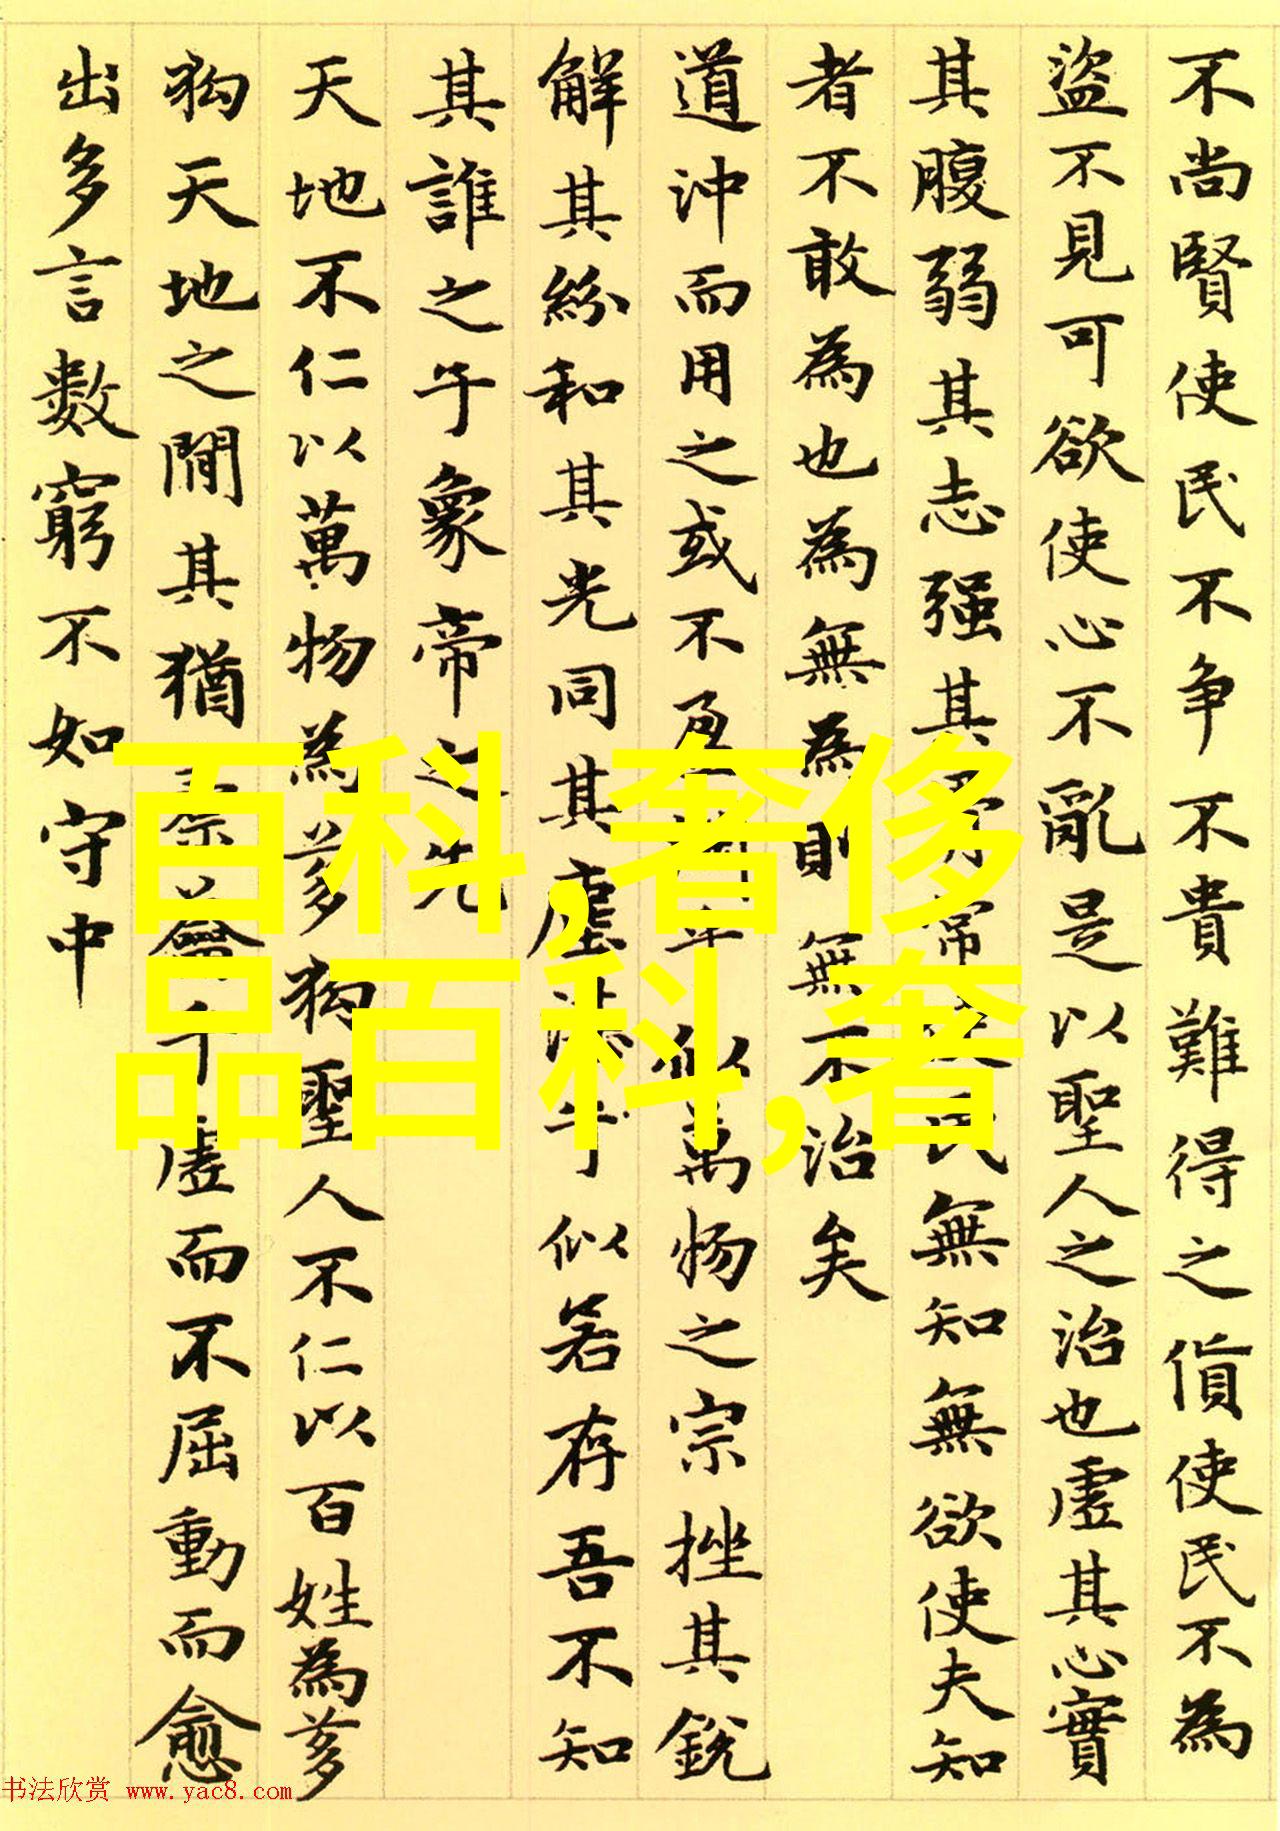 不尚賢使民不争不貴難得之貨使民不為
盜不見可欲使心不亂是以聖人之治也虛其心實
其腹弱其志强其骨常使民無知無欲使夫知
者不敢為也為無為則無不治矣
道沖而用之或不盈淵乎似萬物之宗挫其銳
解其紛和其光同其塵湛乎似若存吾不知
其誰之子象帝之先
天地不仁以萬物為芻狗聖人不仁以百姓為芻
狗天地之間其猶橐籥乎虛而不屈動而愈
出多言數窮不如守中
百科,奢侈
品百科,奢
书法欣赏 www.yac8.com